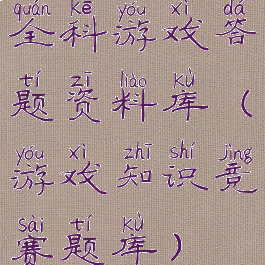 quán kē yóu xì dá
全科游戏答
tí zī liào kù
题资料库（
yóu xì zhī shí jìng
游戏知识竞
sài tí kù
赛题库）